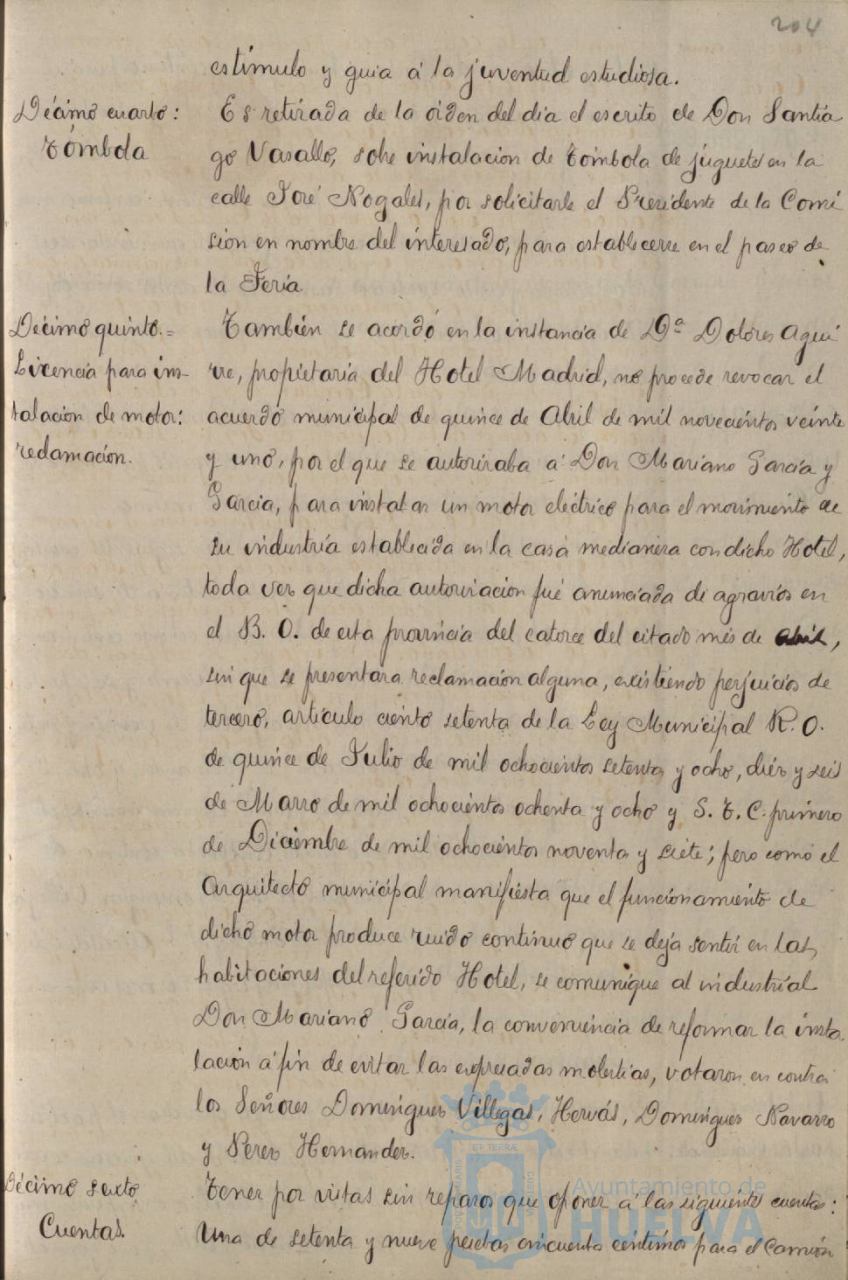 204
estímulo y guia á la juventud estudiosa.
Décimo cuarto:
Tómbola
Es retirada de la orden del dia el escrito de Don Santia
go Vasallo, sobre instalacion de Tómbola de juguetes en la
calle José Nogales, por solicitarle el Presidente de la Comi
sion en nombre del interesado, para establecerse en el paseo de
la Feria
Décimo quinto.=
Licencia para ins-
talacion de motor:
reclamación.
También se acordó en la instancia de Dª Dolores Agui
rre, propietaria del Hotel Madrid, no procede revocar el
acuerdo municipal de quince de Abril de mil novecientos veinte
y uno, por el que se autorizaba á Don Mariano García y
García, para instalar un motor eléctrico para el movimiento de
su industria establecida en la casa medianera con dicho Hotel,
toda vez que dicha autorizacion fué anunciada de agravios en
el B. O. de esta provincia del catorce del citado mes de Abril,
sin que se presentara reclamación alguna, existiendo perjuicios de
tercero, artículo ciento setenta de la Ley Municipal R. O.
de quince de Julio de mil ochocientos setenta y ocho, diez y seis
de Marzo de mil ochocientos ochenta y ocho y S. T. C. primero
de Diciembre de mil ochocientos noventa y siete; pero como el
Arquitecto municipal manifiesta que el funcionamiento de
dicho motor produce ruido continuo que se deja sentir en las
habitaciones del referido Hotel, se comunique al industrial
Don Mariano García, la conveniencia de reformar la insta
lación á fin de evitar las expresadas molestias, votaron en contra
los Señores Dominguez Villegas, Hervás, Dominguez Navarro
y Perez Hernandez.
Décimo sexto
Cuentas.
Tener por vistas sin reparos que oponer á las siguientes cuentas:
Una de setenta y nueve pesetas cincuenta centimos para el Camión
Ayuntamiento de
HUELVA